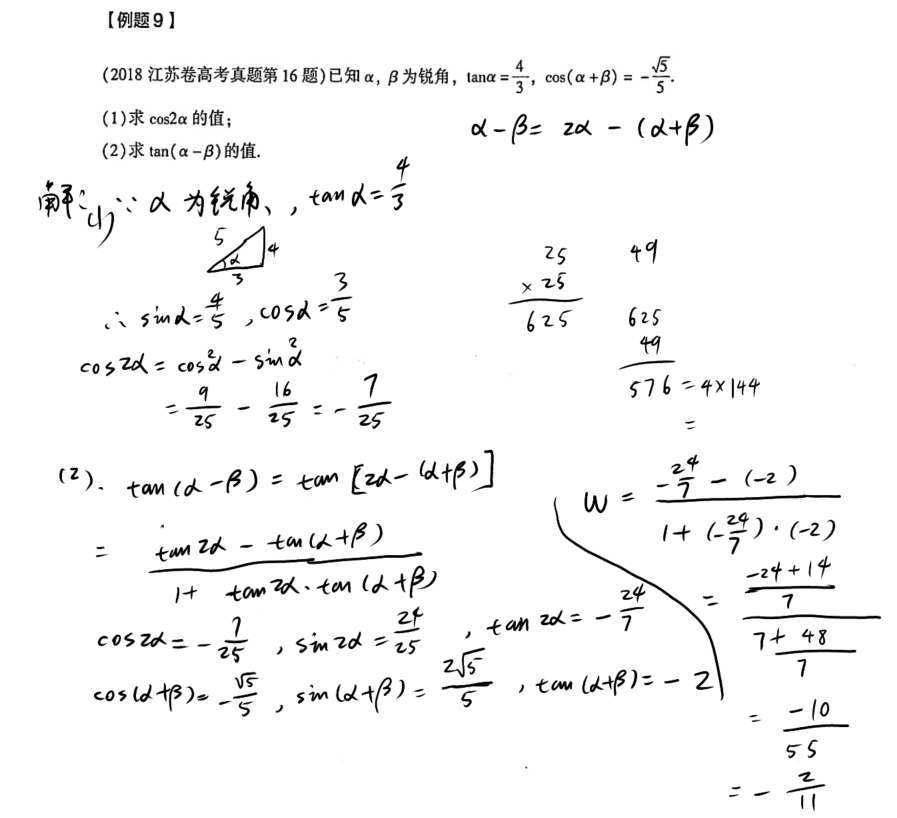 【例题9】
(2018 江苏卷高考真题第 16 题)已知 α, β 为锐角, tanα = 4/3, cos(α+β) = -√5/5.
(1)求 cos2α 的值;
(2)求 tan(α-β)的值.
α-β = 2α - (α+β)
解: (1) ∵ α 为锐角、, tan α = 4/3
5 4 α 3
∴ sinα = 4/5 , cosα = 3/5
cos2α = cos²α - sin²α
= 9/25 - 16/25 = - 7/25
25
× 25
625
49
625
49
576 = 4×144
=
(2). tan(α-β) = tan [2α-(α+β)]
= (tan2α - tan(α+β)) / (1+ tan2α·tan(α+β))
cos2α = - 7/25 , sin2α = 24/25 , tan2α = - 24/7
cos(α+β) = - √5/5 , sin(α+β) = 2√5/5 , tan(α+β) = - 2
W = (-24/7 - (-2)) / (1+ (-24/7)·(-2))
= ((-24+14)/7) / ((7+48)/7)
= -10/55
= - 2/11